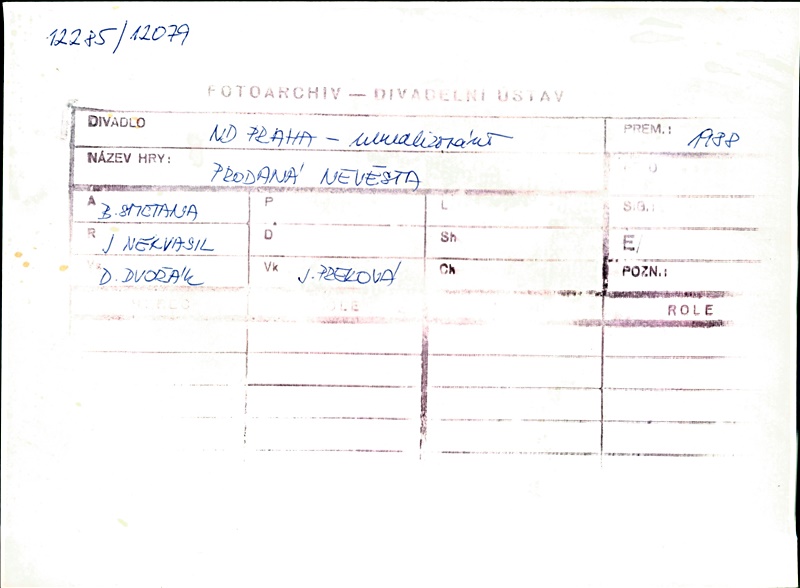 12285/12079
FOTOARCHIV — DIVADELNÍ ÚSTAV
DIVADLO ND PRAHA – nerealizováno PREM.: 1988
NÁZEV HRY: PRODANÁ NEVĚSTA
A B. SMETANA P L S.G.:
R J NEKVASIL D Sh E/
D. DVOŘÁK Vk J. PREKOVÁ Ch POZN.:
ROLE